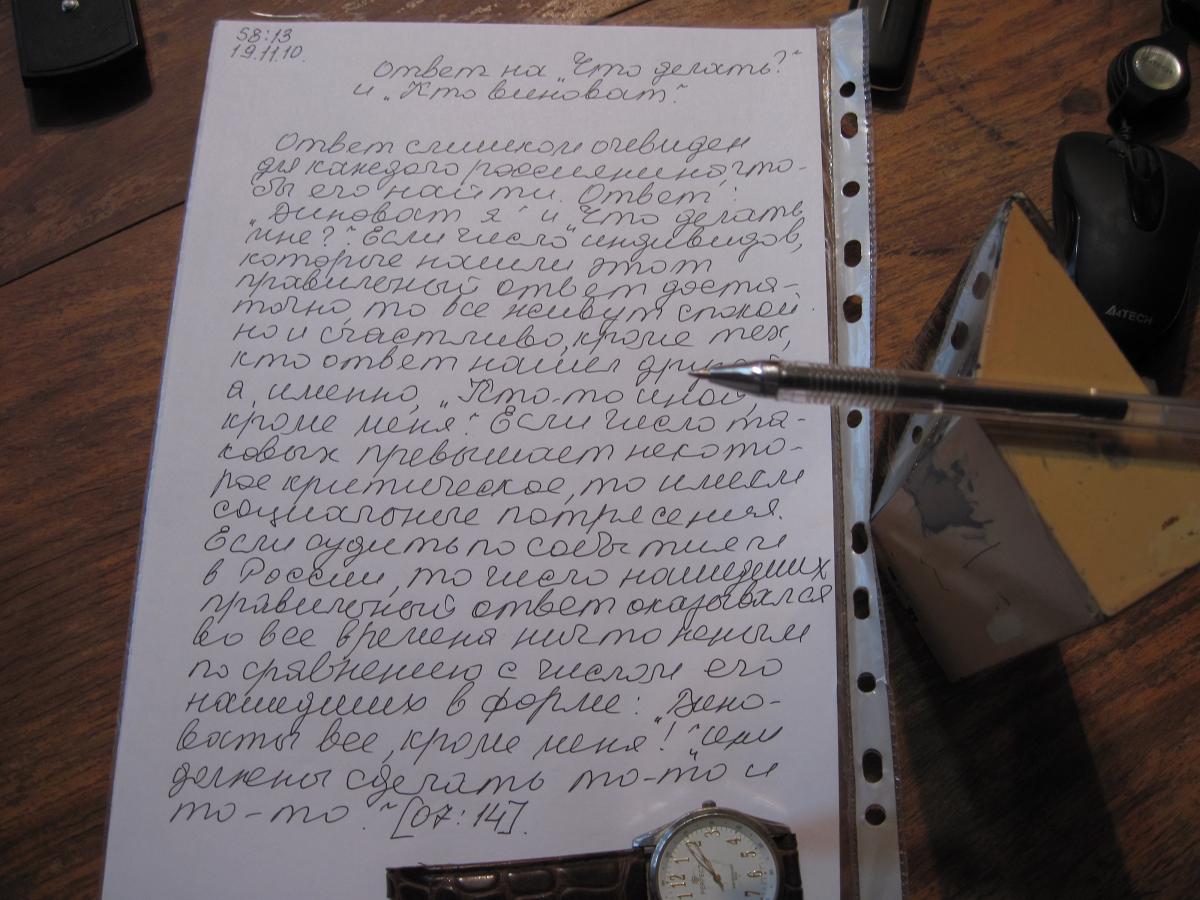 58:13
19.11.10.
Ответ на „Что делать?“
и „Кто виноват“.
Ответ слишком очевиден
для каждого россиянина, что-
бы его найти. Ответ:
„Виноват я“ и „Что делать
мне?“. Если число индивидов,
которые нашли этот
правильный ответ доста-
точно, то все живут спокой-
но и счастливо, кроме тех,
кто ответ нашел другой
а, именно, „Кто-то иной,
кроме меня“. Если число та-
ковых превышает некото-
рое критическое, то имеем
социальные потрясения.
Если судить по событиям
в России, то число нашедших
правильный ответ оказывался
во все времена ничтожным
по сравнению с числом его
нашедших в форме: „Вино-
ваты все, кроме меня!“ „они
должны сделать то-то и
то-то.“ [07:14].
A4TECH